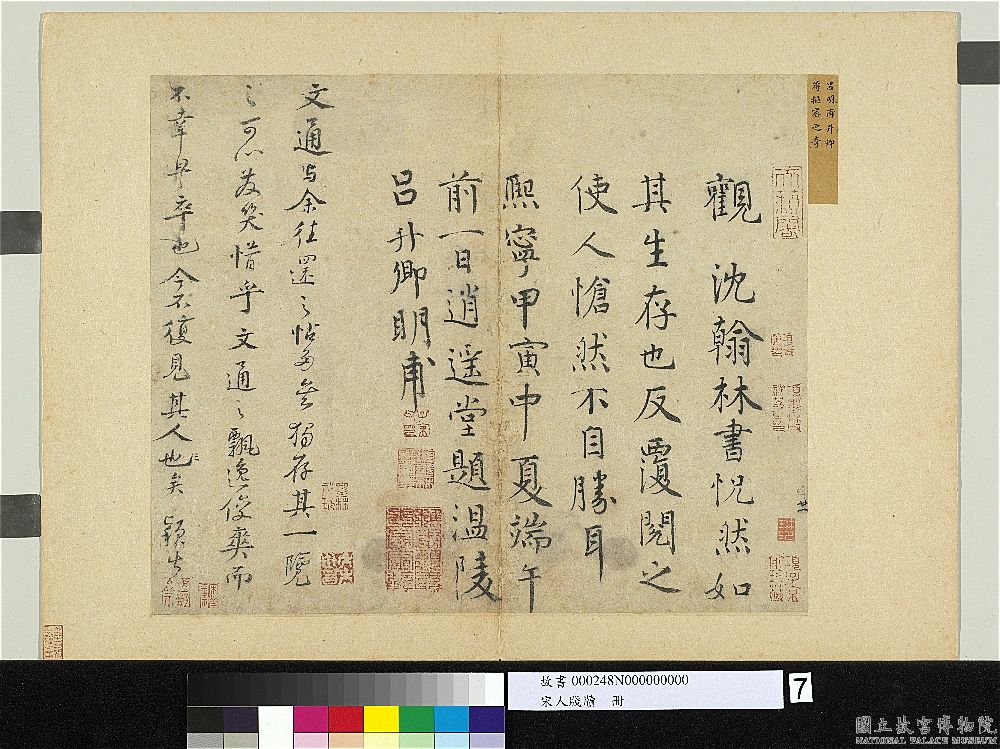 呂明甫升卿
蔣摭密之奇
觀 沈翰林書怳然如
其生存也反覆閱之
使人愴然不自勝耳
熙寧甲寅中夏端午
前一日逍遥堂題溫陵
呂升卿明甫
文通與余往還之帖多無獨存其一覽
之可以發笑惜乎文通之飄逸俊爽而
不幸早卒也今不復見其人也矣潁叔
故書 000248N000000000
宋人牋牘 冊
7
國立故宮博物院
NATIONAL PALACE MUSEUM